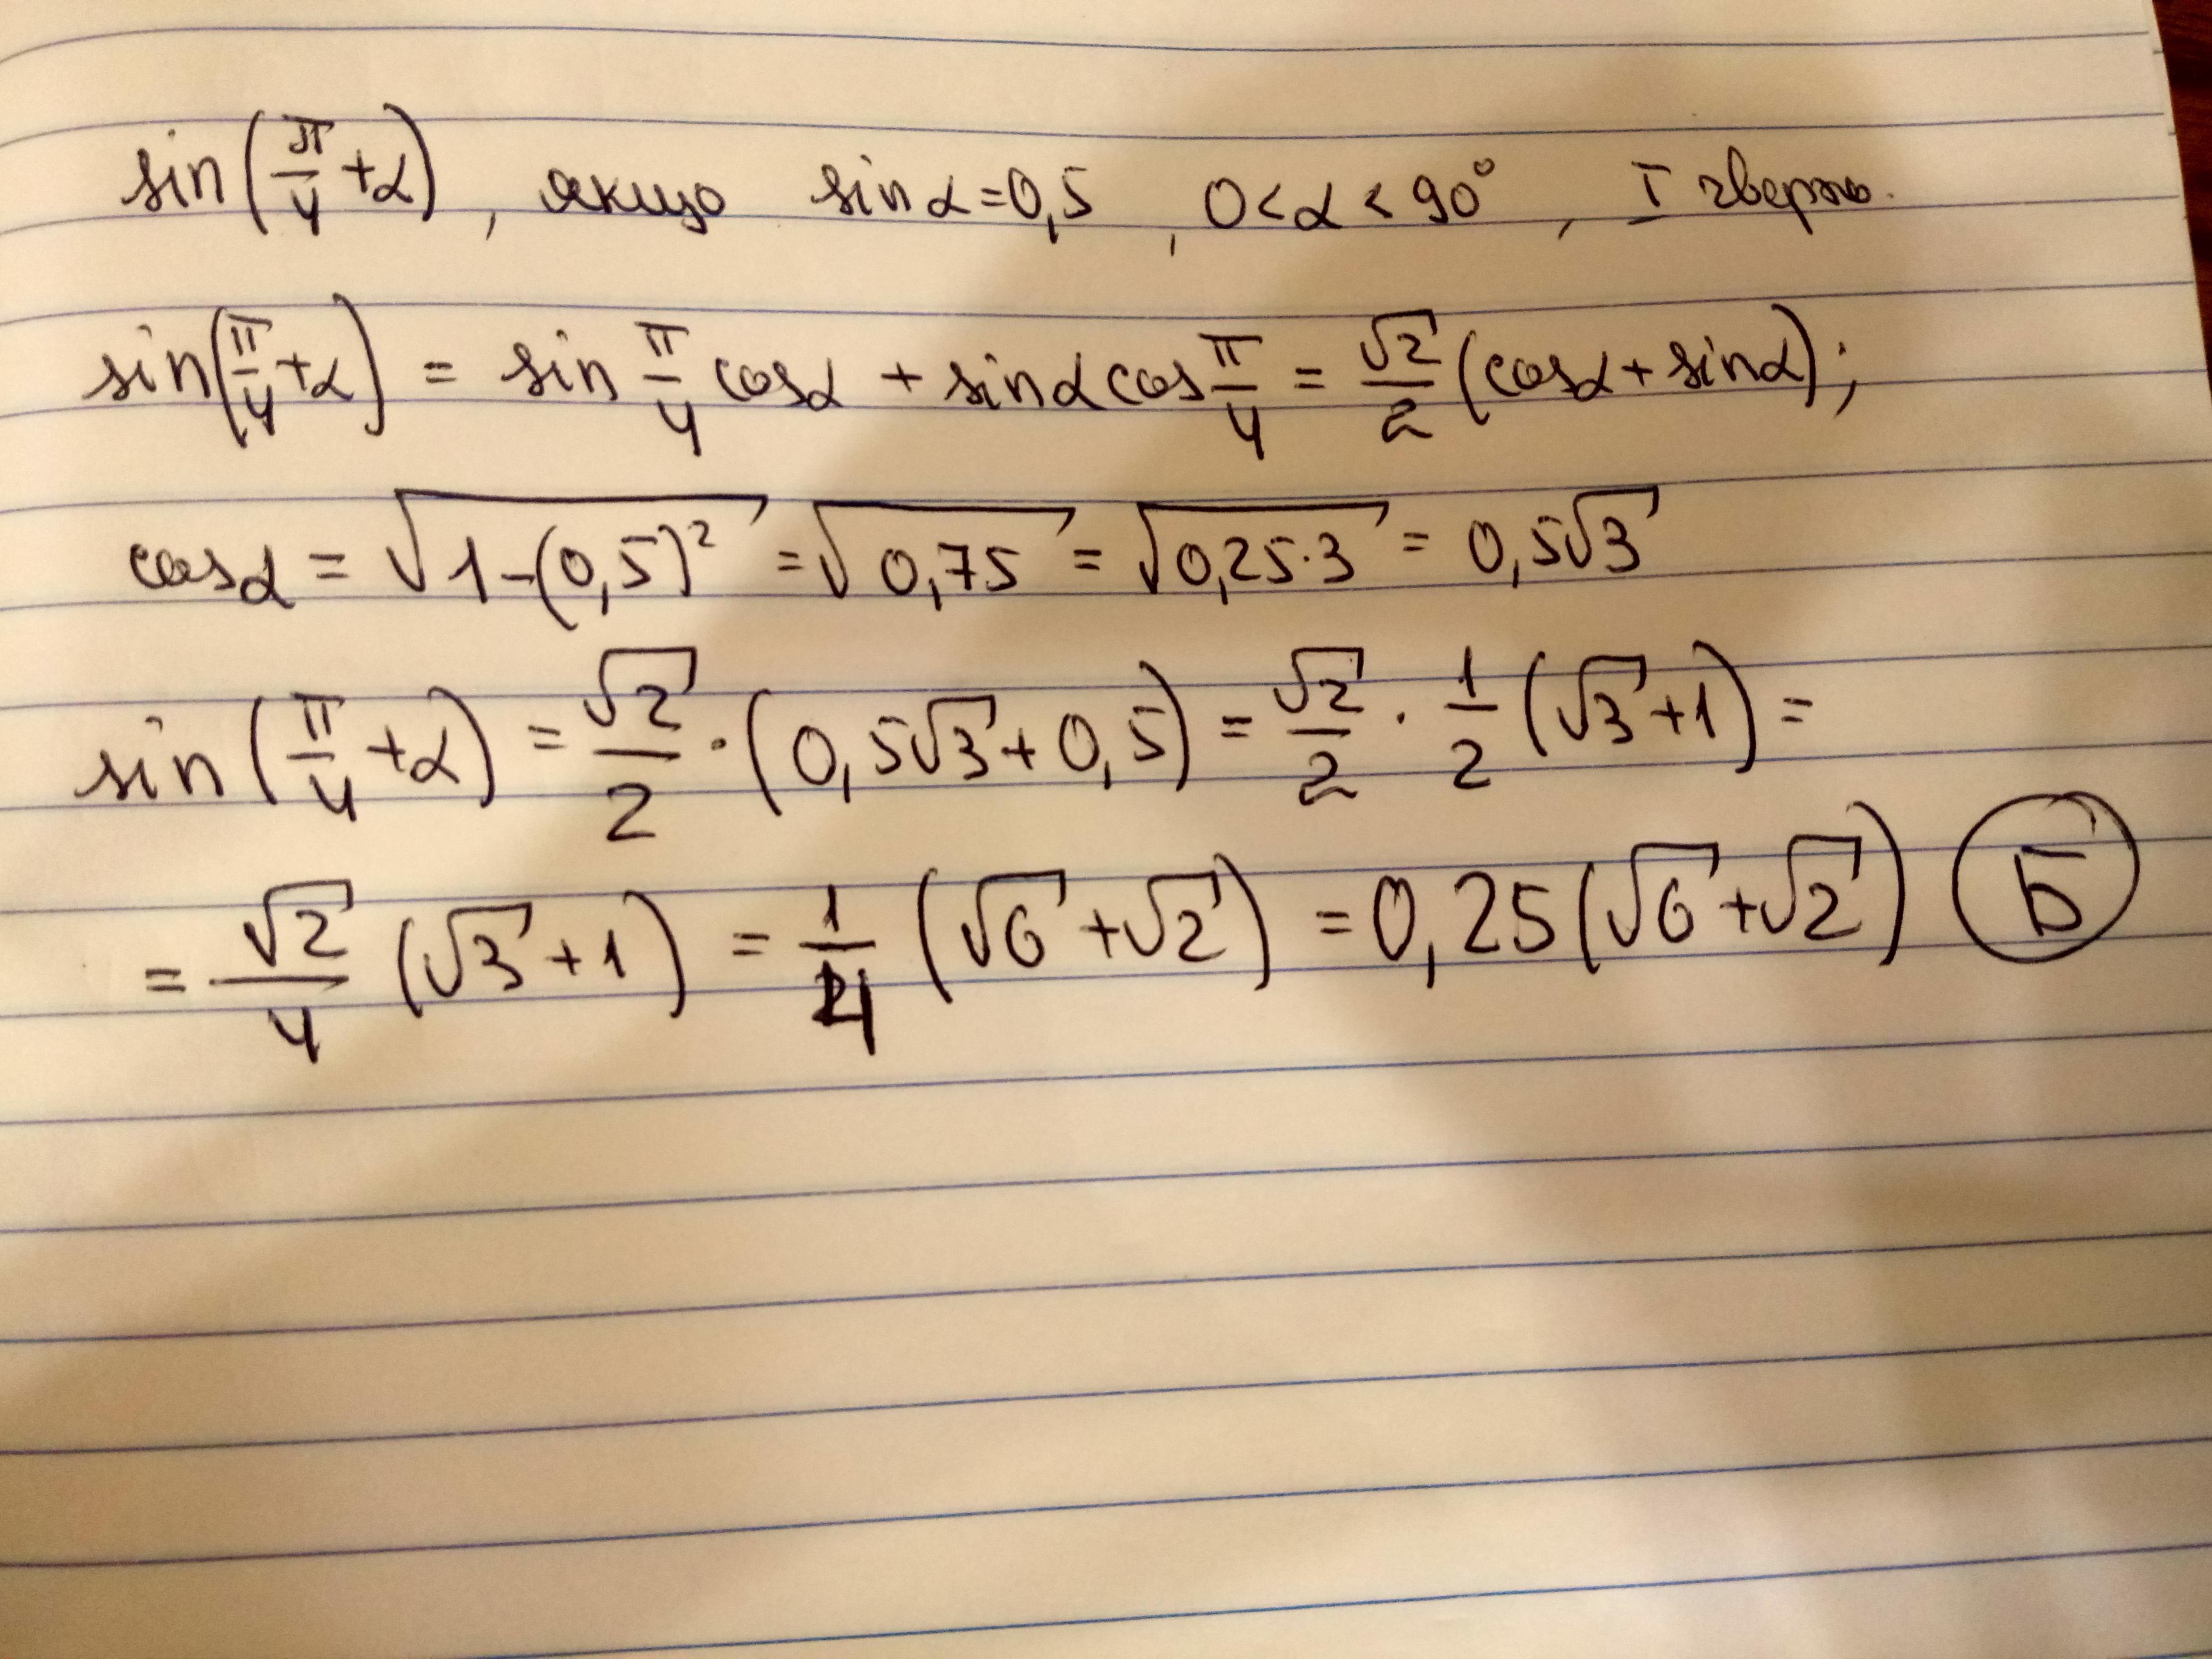 sin(π/4 + α), якщо sin α = 0,5, 0 < α < 90°, I чверть.
sin(π/4 + α) = sin π/4 cos α + sin α cos π/4 = √2/2 (cos α + sin α);
cos α = √(1 - (0,5)²) = √(0,75) = √(0,25·3) = 0,5√3
sin(π/4 + α) = √2/2 · (0,5√3 + 0,5) = √2/2 · 1/2 (√3 + 1) =
= √2/4 (√3 + 1) = 1/4 (√6 + √2) = 0,25(√6 + √2) Б